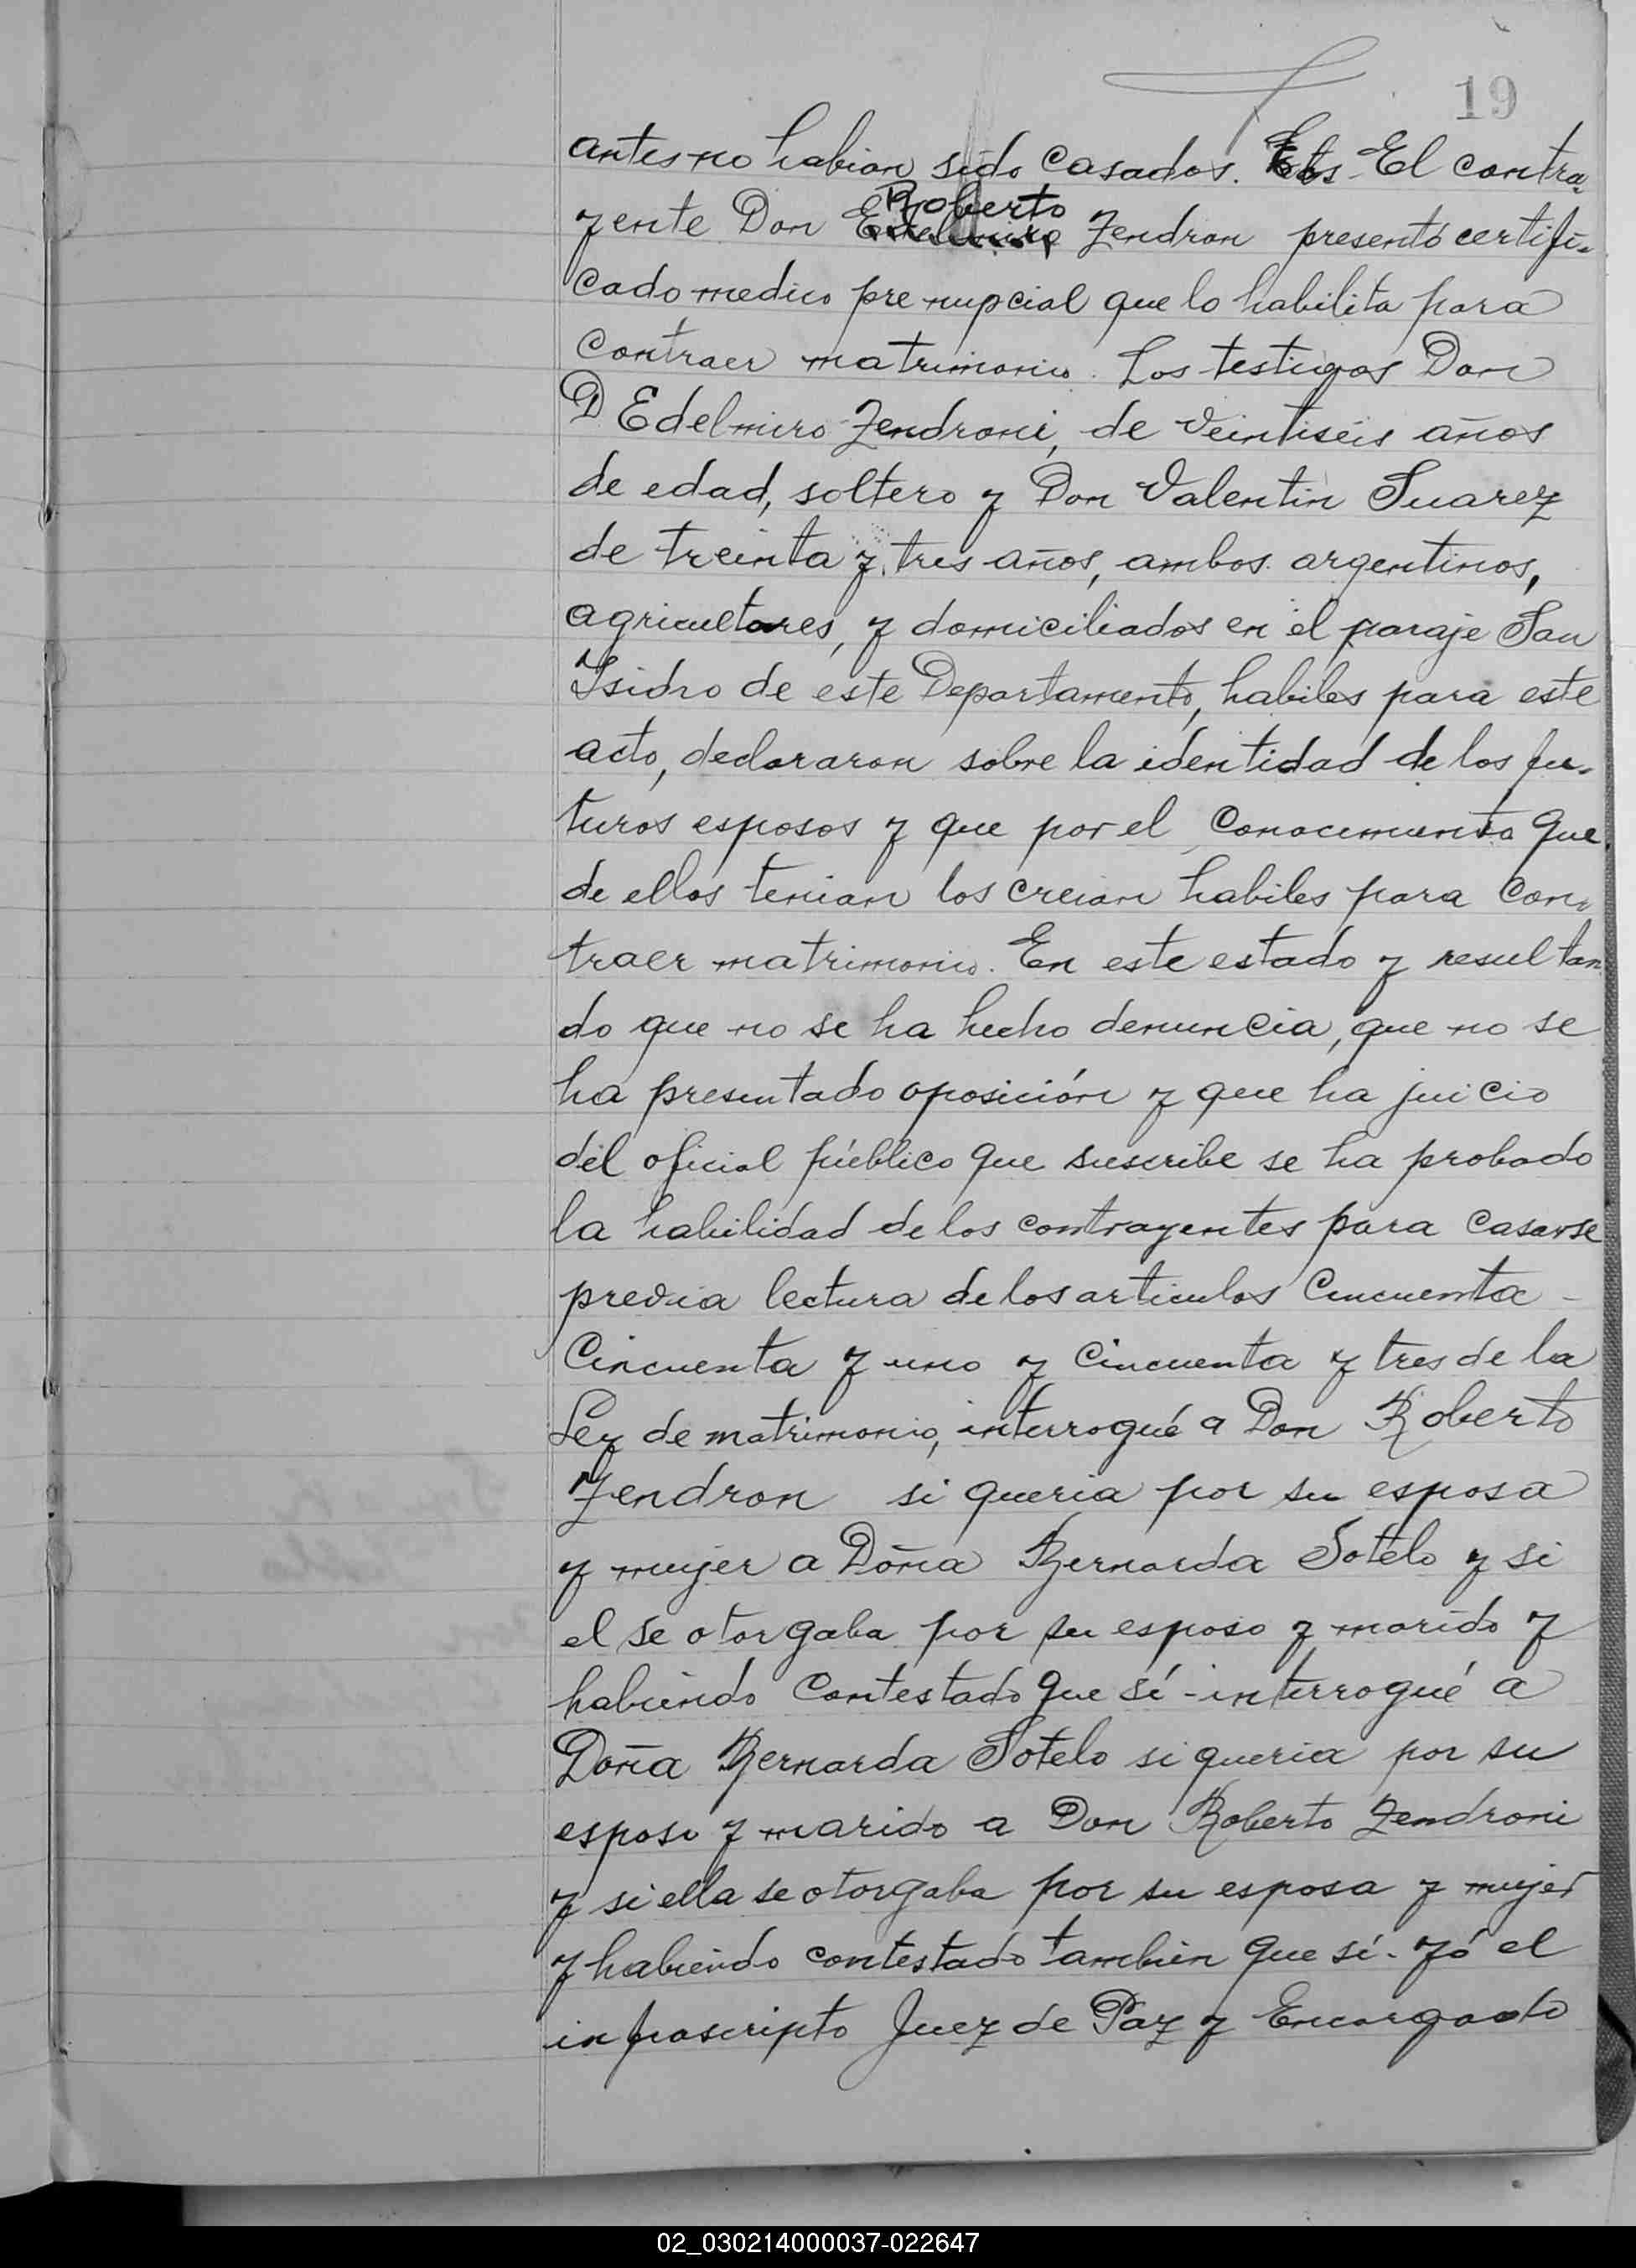 19
antes no habian sido casados. Los El contra-
yente Don Edelmiro Roberto Zendron presentó certifi-
cado medico pre nupcial que lo habilita para
contraer matrimonio. Los testigos Don
D Edelmiro Zendroni, de veintiseis años
de edad, soltero y Don Valentin Suarez
de treinta y tres años, ambos argentinos,
agricultores, y domiciliados en el paraje San
Isidro de este Departamento, habiles para este
acto, declararon sobre la identidad de los fu-
turos esposos y que por el conocimiento que
de ellos tenian los creian habiles para con-
traer matrimonio. En este estado y resultan
do que no se ha hecho denuncia, que no se
ha presentado oposición y que ha juicio
del oficial público que suscribe se ha probado
la habilidad de los contrayentes para casarse
previa lectura de los articulos Cincuenta -
Cincuenta y uno y Cincuenta y tres de la
Ley de matrimonio, interrogué a Don Roberto
Zendron si queria por su esposa
y mujer a Doña Bernarda Sotelo y si
el se otorgaba por su esposo y marido y
habiendo contestado que sí - interrogué a
Doña Bernarda Sotelo si queria por su
esposo y marido a Don Roberto Zendroni
y si ella se otorgaba por su esposa y mujer
y habiendo contestado tambien que sí - yó el
infrascripto Juez de Paz y Encargado
02_030214000037-022647